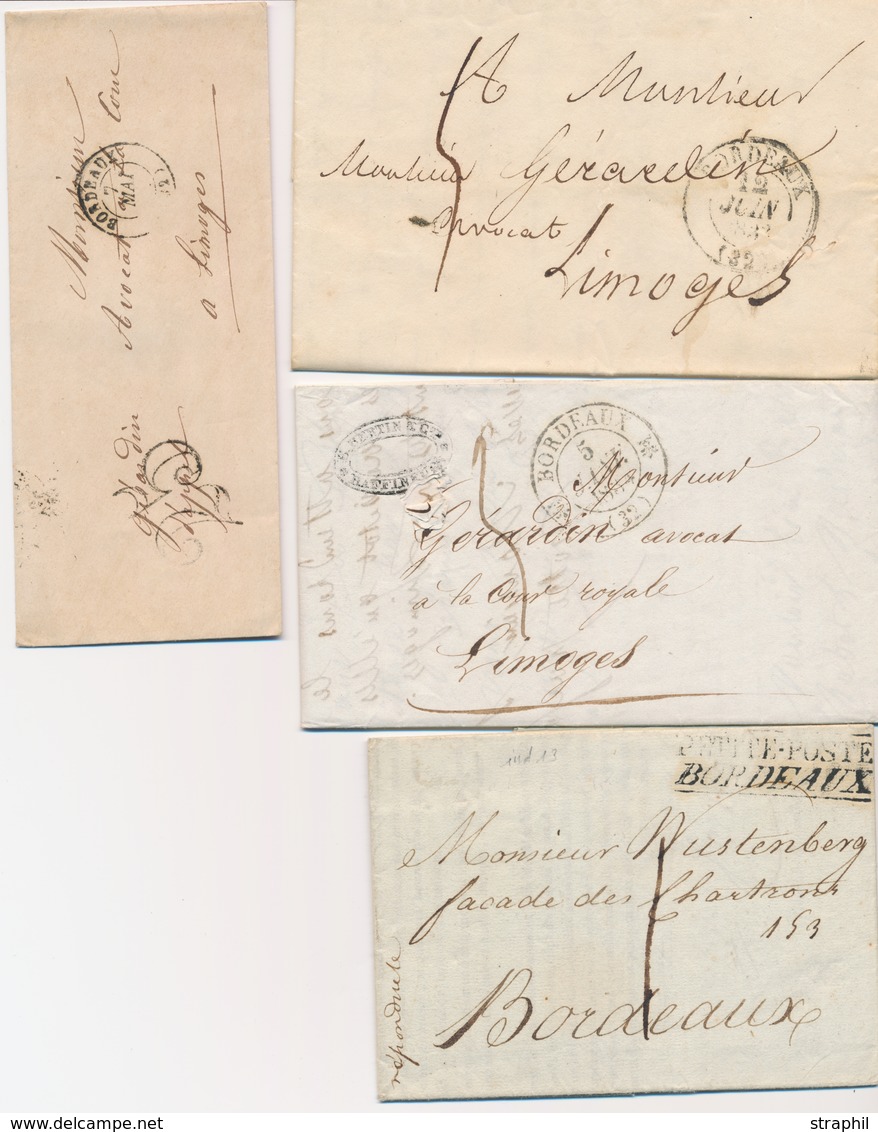 Monsieur
Avocat
à Limoges
BORDEAUX
7
MAI
A Monsieur
Monsieur Gérardin
Avocat
Limoges
BORDEAUX
12
JUIN
(32)
BORDEAUX
5
(32)
Monsieur
Gérardin avocat
à la cour royale
Limoges
PETITE-POSTE
BORDEAUX
ind 13
Monsieur Wustenberg
façade des Chartrons
153
Bordeaux
répondu le
www.delcampe.net
straphil